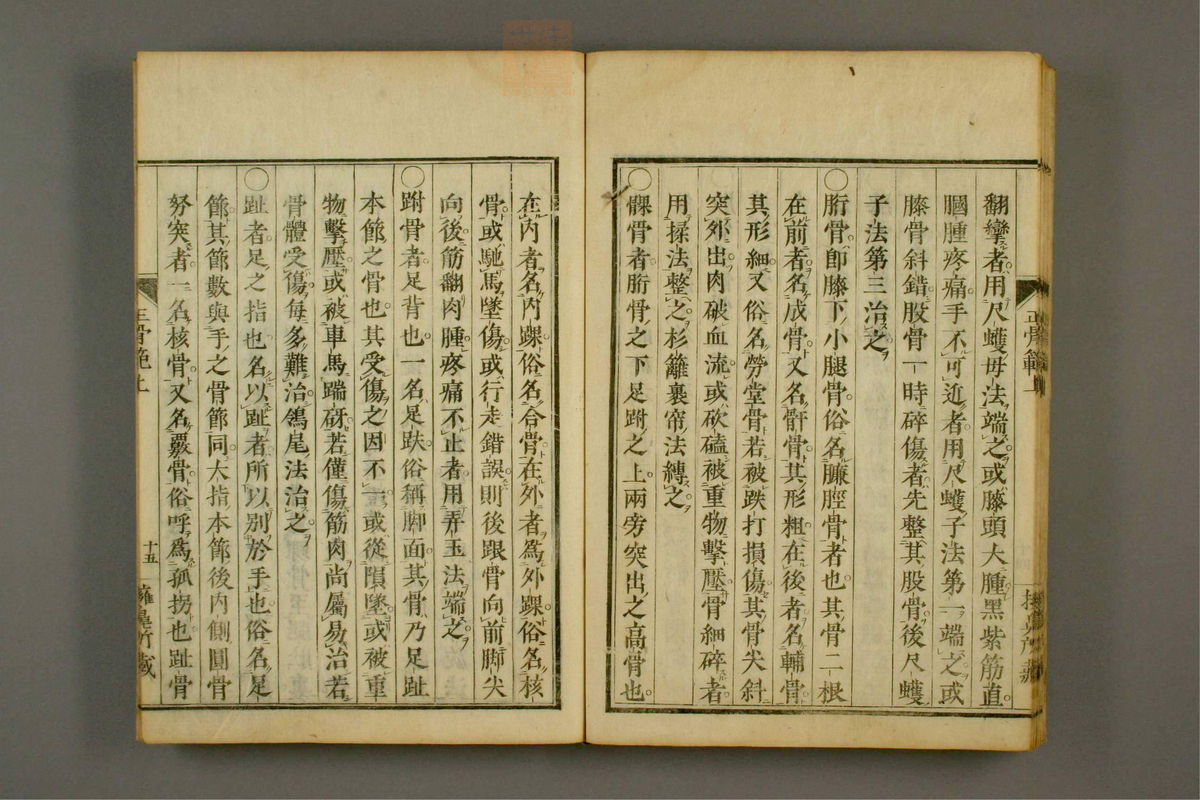 翻攣者用尺蠖毋法端之或膝頭大腫黑紫筋直
膕腫疼痛手不可近者用尺蠖子法第一端之或
膝骨斜錯股骨一時碎傷者先整其股骨後尺蠖
子法第三治之
〇胻骨即膝下小腿骨俗名臁脛骨者也其骨二根
在前者名成骨又名骭骨其形粗在後者名輔骨
其形細又俗名勞堂骨若被跌打損傷其骨尖斜
突外出肉破血流或砍磕被重物擊壓骨細碎者
用揉法整之杉籬裹帘法縛之
〇髁骨者胻骨之下足跗之上兩旁突出之高骨也
在內者名內踝俗名合骨在外者爲外踝俗名核
骨或馳馬墜傷或行走錯誤則後跟骨向前脚尖
向後筋翻肉腫疼痛不止者用弄玉法端之
〇跗骨者足背也一名足趺俗稱脚面其骨乃足趾
本節之骨也其受傷之因不一或從隕墜或被重
物擊壓或被車馬踹砑若僅傷筋肉尚屬易治若
骨體受傷每多難治鴿尾法治之
〇趾者足之指也名以趾者所以別於手也俗名足
節其節數與手之骨節同大指本節後內側圓骨
努突者一名核骨又名覈骨俗呼爲孤拐也趾骨
正骨範上
十五